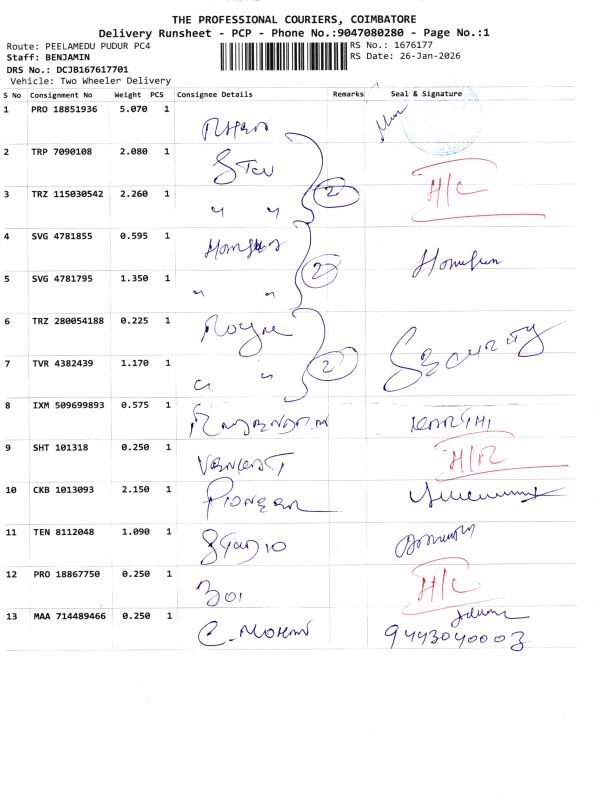 THE PROFESSIONAL COURIERS, COIMBATORE
Delivery Runsheet - PCP - Phone No.:9047080280 - Page No.:1
Route: PEELAMEDU PUDUR PC4 RS No.: 1676177
Staff: BENJAMIN RS Date: 26-Jan-2026
DRS No.: DCJB167617701
Vehicle: Two Wheeler Delivery
S No Consignment No Weight PCS Consignee Details Remarks Seal & Signature
1 PRO 18851936 5.070 1
2 TRP 7090108 2.080 1 H/C
3 TRZ 115030542 2.260 1 " " 2
4 SVG 4781855 0.595 1
5 SVG 4781795 1.350 1 " " 2
6 TRZ 280054188 0.225 1 Security
7 TVR 4382439 1.170 1 " " 2
8 IXM 509699893 0.575 1 KARTHI
9 SHT 101318 0.250 1 VENKAT
10 CKB 1013093 2.150 1 PIONEER
11 TEN 8112048 1.090 1 STUDIO
12 PRO 18867750 0.250 1 BOI H/C
13 MAA 714489466 0.250 1 C. MOHAN
9443040003